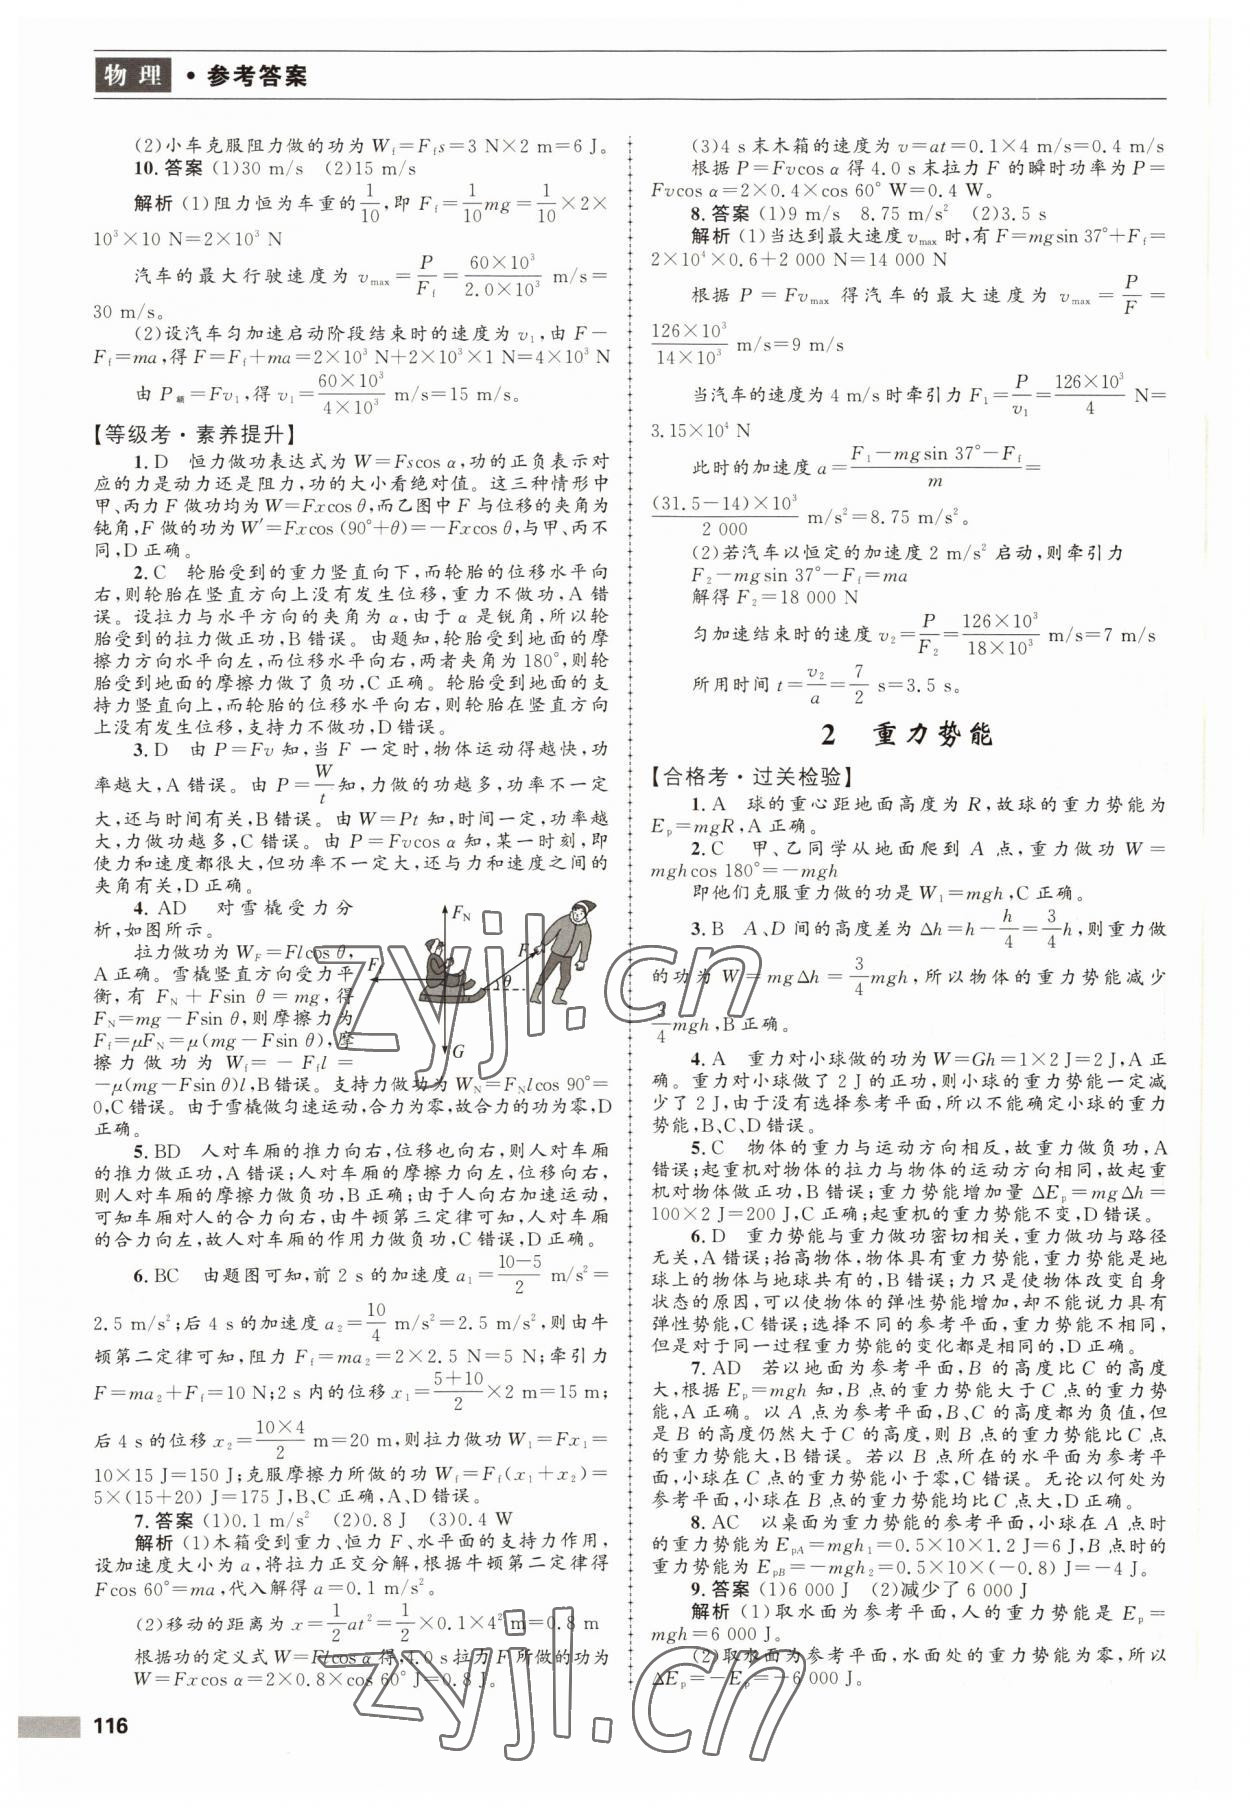 物理·参考答案
(2)小车克服阻力做的功为 W_f=F_f s=3 N×2 m=6 J。
10.答案 (1)30 m/s (2)15 m/s
解析 (1)阻力恒为车重的1/10,即 F_f=1/10 mg=1/10×2×
10³×10 N=2×10³ N
汽车的最大行驶速度为 v_max=P/F_f=60×10³/2.0×10³ m/s=
30 m/s。
(2)设汽车匀加速启动阶段结束时的速度为 v₁,由 F-
F_f=ma,得 F=F_f+ma=2×10³ N+2×10³×1 N=4×10³ N
由 P_额=Fv₁,得 v₁=60×10³/4×10³ m/s=15 m/s。
【等级考·素养提升】
1.D 恒力做功表达式为 W=Fscos α,功的正负表示对
应的力是动力还是阻力,功的大小看绝对值。这三种情形中
甲、丙力 F 做功均为 W=Fxcos θ,而乙图中 F 与位移的夹角为
钝角,F 做的功为 W′=Fxcos (90°+θ)=-Fxcos θ,与甲、丙不
同,D 正确。
2.C 轮胎受到的重力竖直向下,而轮胎的位移水平向
右,则轮胎在竖直方向上没有发生位移,重力不做功,A 错
误。设拉力与水平方向的夹角为 α,由于 α 是锐角,所以轮
胎受到的拉力做正功,B 错误。由题知,轮胎受到地面的摩
擦力方向水平向左,而位移水平向右,两者夹角为 180°,则轮
胎受到地面的摩擦力做了负功,C 正确。轮胎受到地面的支
持力竖直向上,而轮胎的位移水平向右,则轮胎在竖直方
向上没有发生位移,支持力不做功,D 错误。
3.D 由 P=Fv 知,当 F 一定时,物体运动得越快,功
率越大,A 错误。由 P=W/t 知,力做的功越多,功率不一定
大,还与时间有关,B 错误。由 W=Pt 知,时间一定,功率越
大,力做功越多,C 错误。由 P=Fvcos α 知,某一时刻,即
使力和速度都很大,但功率不一定大,还与力和速度之间的
夹角有关,D 正确。
4.AD 对雪橇受力分
析,如图所示。
拉力做功为 W_F=Flcos θ,
A 正确。雪橇竖直方向受力平
衡,有 F_N+Fsin θ=mg,得
F_N=mg-Fsin θ,则摩擦力为
F_f=μF_N=μ(mg-Fsin θ),摩
擦力做功为 W_f=-F_f l=
-μ(mg-Fsin θ)l,B 错误。支持力做功为 W_N=F_N lcos 90°=
0,C 错误。由于雪橇做匀速运动,合力为零,故合力的功为零,D
正确。
F_N
F
F_f
θ
G
5.BD 人对车厢的推力向右,位移也向右,则人对车厢
的推力做正功,A 错误;人对车厢的摩擦力向左,位移向右,
则人对车厢的摩擦力做负功,B 正确;由于人向右加速运动,
可知车厢对人的合力向右,由牛顿第三定律可知,人对车厢
的合力向左,故人对车厢的作用力做负功,C 错误,D 正确。
6.BC 由题图可知,前 2 s 的加速度 a₁=10-5/2 m/s²=
2.5 m/s²;后 4 s 的加速度 a₂=10/4 m/s²=2.5 m/s²,则由牛
顿第二定律可知,阻力 F_f=ma₂=2×2.5 N=5 N;牵引力
F=ma₂+F_f=10 N;2 s 内的位移 x₁=5+10/2×2 m=15 m;
后 4 s 的位移 x₂=10×4/2 m=20 m,则拉力做功 W₁=Fx₁=
10×15 J=150 J;克服摩擦力所做的功 W_f=F_f(x₁+x₂)=
5×(15+20) J=175 J,B、C 正确,A、D 错误。
7.答案 (1)0.1 m/s² (2)0.8 J (3)0.4 W
解析 (1)木箱受到重力、恒力 F、水平面的支持力作用,
设加速度大小为 a,将拉力正交分解,根据牛顿第二定律得
Fcos 60°=ma,代入解得 a=0.1 m/s²。
(2)移动的距离为 x=1/2 at²=1/2×0.1×4² m=0.8 m
根据功的定义式 W=Flcos α得,4.0 s 拉力 F 所做的功为
W=Fxcos α=2×0.8×cos 60° J=0.8 J。
(3)4 s 末木箱的速度为 v=at=0.1×4 m/s=0.4 m/s
根据 P=Fvcos α 得 4.0 s 末拉力 F 的瞬时功率为 P=
Fvcos α=2×0.4×cos 60° W=0.4 W。
8.答案 (1)9 m/s 8.75 m/s² (2)3.5 s
解析 (1)当达到最大速度 v_max 时,有 F=mgsin 37°+F_f=
2×10⁴×0.6+2 000 N=14 000 N
根据 P=Fv_max 得汽车的最大速度为 v_max=P/F=
126×10³/14×10³ m/s=9 m/s
当汽车的速度为 4 m/s 时牵引力 F₁=P/v₁=126×10³/4 N=
3.15×10⁴ N
此时的加速度 a=F₁-mgsin 37°-F_f/m=
(31.5-14)×10³/2 000 m/s²=8.75 m/s²。
(2)若汽车以恒定的加速度 2 m/s² 启动,则牵引力
F₂-mgsin 37°-F_f=ma
解得 F₂=18 000 N
匀加速结束时的速度 v₂=P/F₂=126×10³/18×10³ m/s=7 m/s
所用时间 t=v₂/a=7/2 s=3.5 s。
2 重力势能
【合格考·过关检验】
1.A 球的重心距地面高度为 R,故球的重力势能为
E_p=mgR,A 正确。
2.C 甲、乙同学从地面爬到 A 点,重力做功 W=
mghcos 180°=-mgh
即他们克服重力做的功是 W₁=mgh,C 正确。
3.B A、D 间的高度差为 Δh=h-h/4=3/4 h,则重力做
的功为 W=mgΔh=3/4 mgh,所以物体的重力势能减少
3/4 mgh,B 正确。
4.A 重力对小球做的功为 W=Gh=1×2 J=2 J,A 正
确。重力对小球做了 2 J 的正功,则小球的重力势能一定减
少了 2 J,由于没有选择参考平面,所以不能确定小球的重力
势能,B、C、D 错误。
5.C 物体的重力与运动方向相反,故重力做负功,A
错误;起重机对物体的拉力与物体的运动方向相同,故起重
机对物体做正功,B 错误;重力势能增加量 ΔE_p=mgΔh=
100×2 J=200 J,C 正确;起重机的重力势能不变,D 错误。
6.D 重力势能与重力做功密切相关,重力做功与路径
无关,A 错误;抬高物体,物体具有重力势能,重力势能是地
球上的物体与地球共有的,B 错误;力只是使物体改变自身
状态的原因,可以使物体的弹性势能增加,却不能说力具有
弹性势能,C 错误;选择不同的参考平面,重力势能不相同,
但是对于同一过程重力势能的变化都是相同的,D 正确。
7.AD 若以地面为参考平面,B 的高度比 C 的高度
大,根据 E_p=mgh 知,B 点的重力势能大于 C 点的重力势
能,A 正确。以 A 点为参考平面,B、C 的高度都为负值,但
是 B 的高度仍然大于 C 的高度,则 B 点的重力势能比 C 点
的重力势能大,B 错误。若以 B 点所在的水平面为参考平
面,小球在 C 点的重力势能小于零,C 错误。无论以何处为
参考平面,小球在 B 点的重力势能均比 C 点大,D 正确。
8.AC 以桌面为重力势能的参考平面,小球在 A 点时
的重力势能为 E_pA=mgh₁=0.5×10×1.2 J=6 J,B 点时的
重力势能为 E_pB=-mgh₂=0.5×10×(-0.8) J=-4 J。
9.答案 (1)6 000 J (2)减少了 6 000 J
解析 (1)取水面为参考平面,人的重力势能是 E_p=
mgh=6 000 J。
(2)取水面为参考平面,水面处的重力势能为零,所以
ΔE_p=-E_p=-6 000 J。
116
zyjl.cn
zyjl.cn